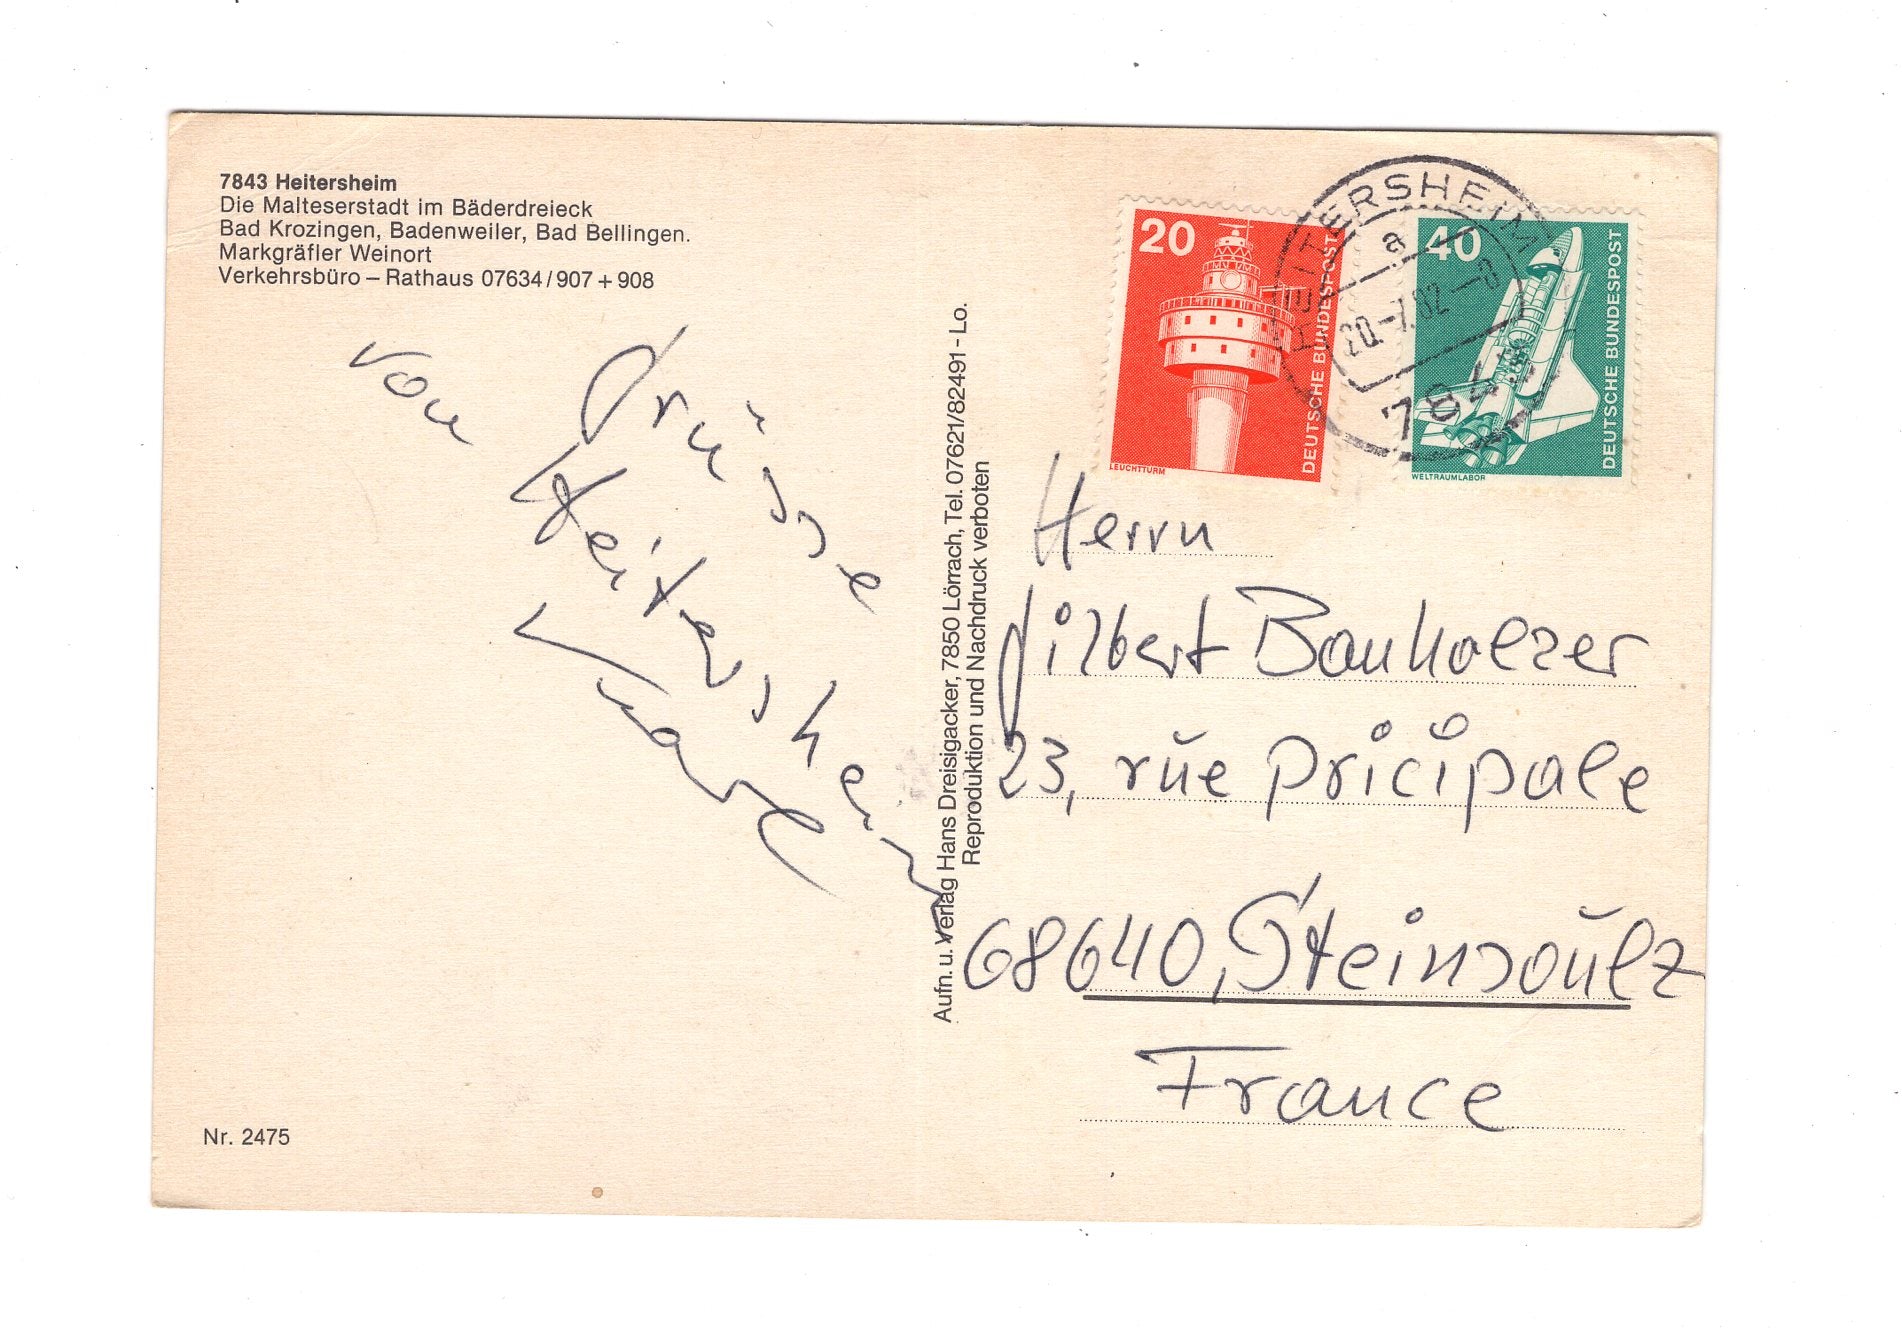 7843 Heitersheim
Die Malteserstadt im Bäderdreieck
Bad Krozingen, Badenweiler, Bad Bellingen.
Markgräfler Weinort
Verkehrsbüro – Rathaus 07634/907 + 908
von
Grüsse
Heitersheim
Nr. 2475
Aufn. u. Verlag Hans Dreisigacker, 7850 Lörrach, Tel. 07621/82491 - Lo.
Reproduktion und Nachdruck verboten
20
DEUTSCHE BUNDESPOST
LEUCHTTURM
40
DEUTSCHE BUNDESPOST
WELTRAUMLABOR
HEITERSHEIM
a
20.-7.82-8
7843
Herrn
Gilbert Bauholzer
23, rue pricipale
68640, Steinsoultz
France